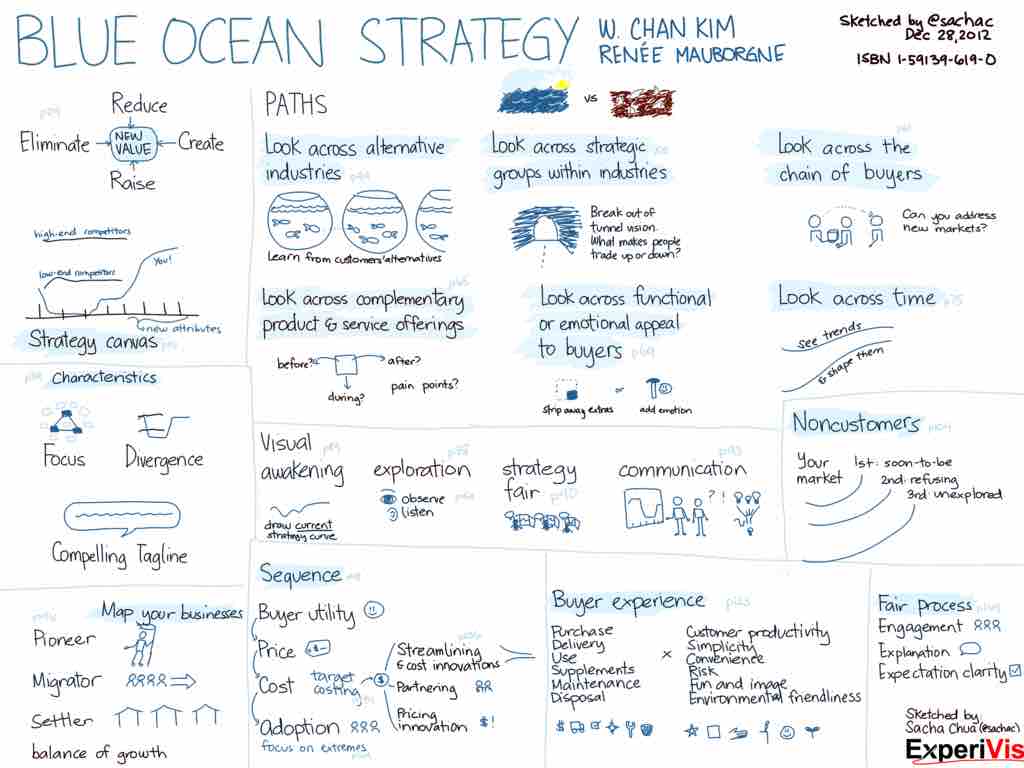 BLUE OCEAN STRATEGY
W. CHAN KIM
RENÉE MAUBORGNE
Sketched by @sachac
Dec 28, 2012
ISBN 1-59139-619-0
Reduce
Eliminate
NEW
VALUE
Create
Raise
high-end competitors
You!
low-end competitors
new attributes
Strategy canvas
PATHS
vs
Look across alternative
industries
Learn from customers' alternatives
Look across strategic
groups within industries
Break out of
tunnel vision.
What makes people
trade up or down?
Look across the
chain of buyers
Can you address
new markets?
Look across complementary
product & service offerings
before?
after?
during?
pain points?
Look across functional
or emotional appeal
to buyers
p69
strip away extras
or
add emotion
Look across time
see trends
& shape them
Characteristics
Focus
Divergence
Compelling Tagline
Visual
awakening
draw current
strategy curve
exploration
observe
listen
strategy
fair
p90
communication
p93
? !
Noncustomers
Your
market
1st: soon-to-be
2nd: refusing
3rd: unexplored
Map your businesses
Pioneer
Migrator
Settler
balance of growth
Sequence
Buyer utility
Price
Cost
target
costing
$
Adoption
focus on extremes
Streamlining
& cost innovations
Partnering
Pricing
innovation
$!
Buyer experience
p123
Purchase
Delivery
Use
Supplements
Maintenance
Disposal
x
Customer productivity
Simplicity
Convenience
Risk
Fun and image
Environmental friendliness
$
Fair process
Engagement
Explanation
Expectation clarity
Sketched by
Sacha Chua (@sachac)
ExperiVis